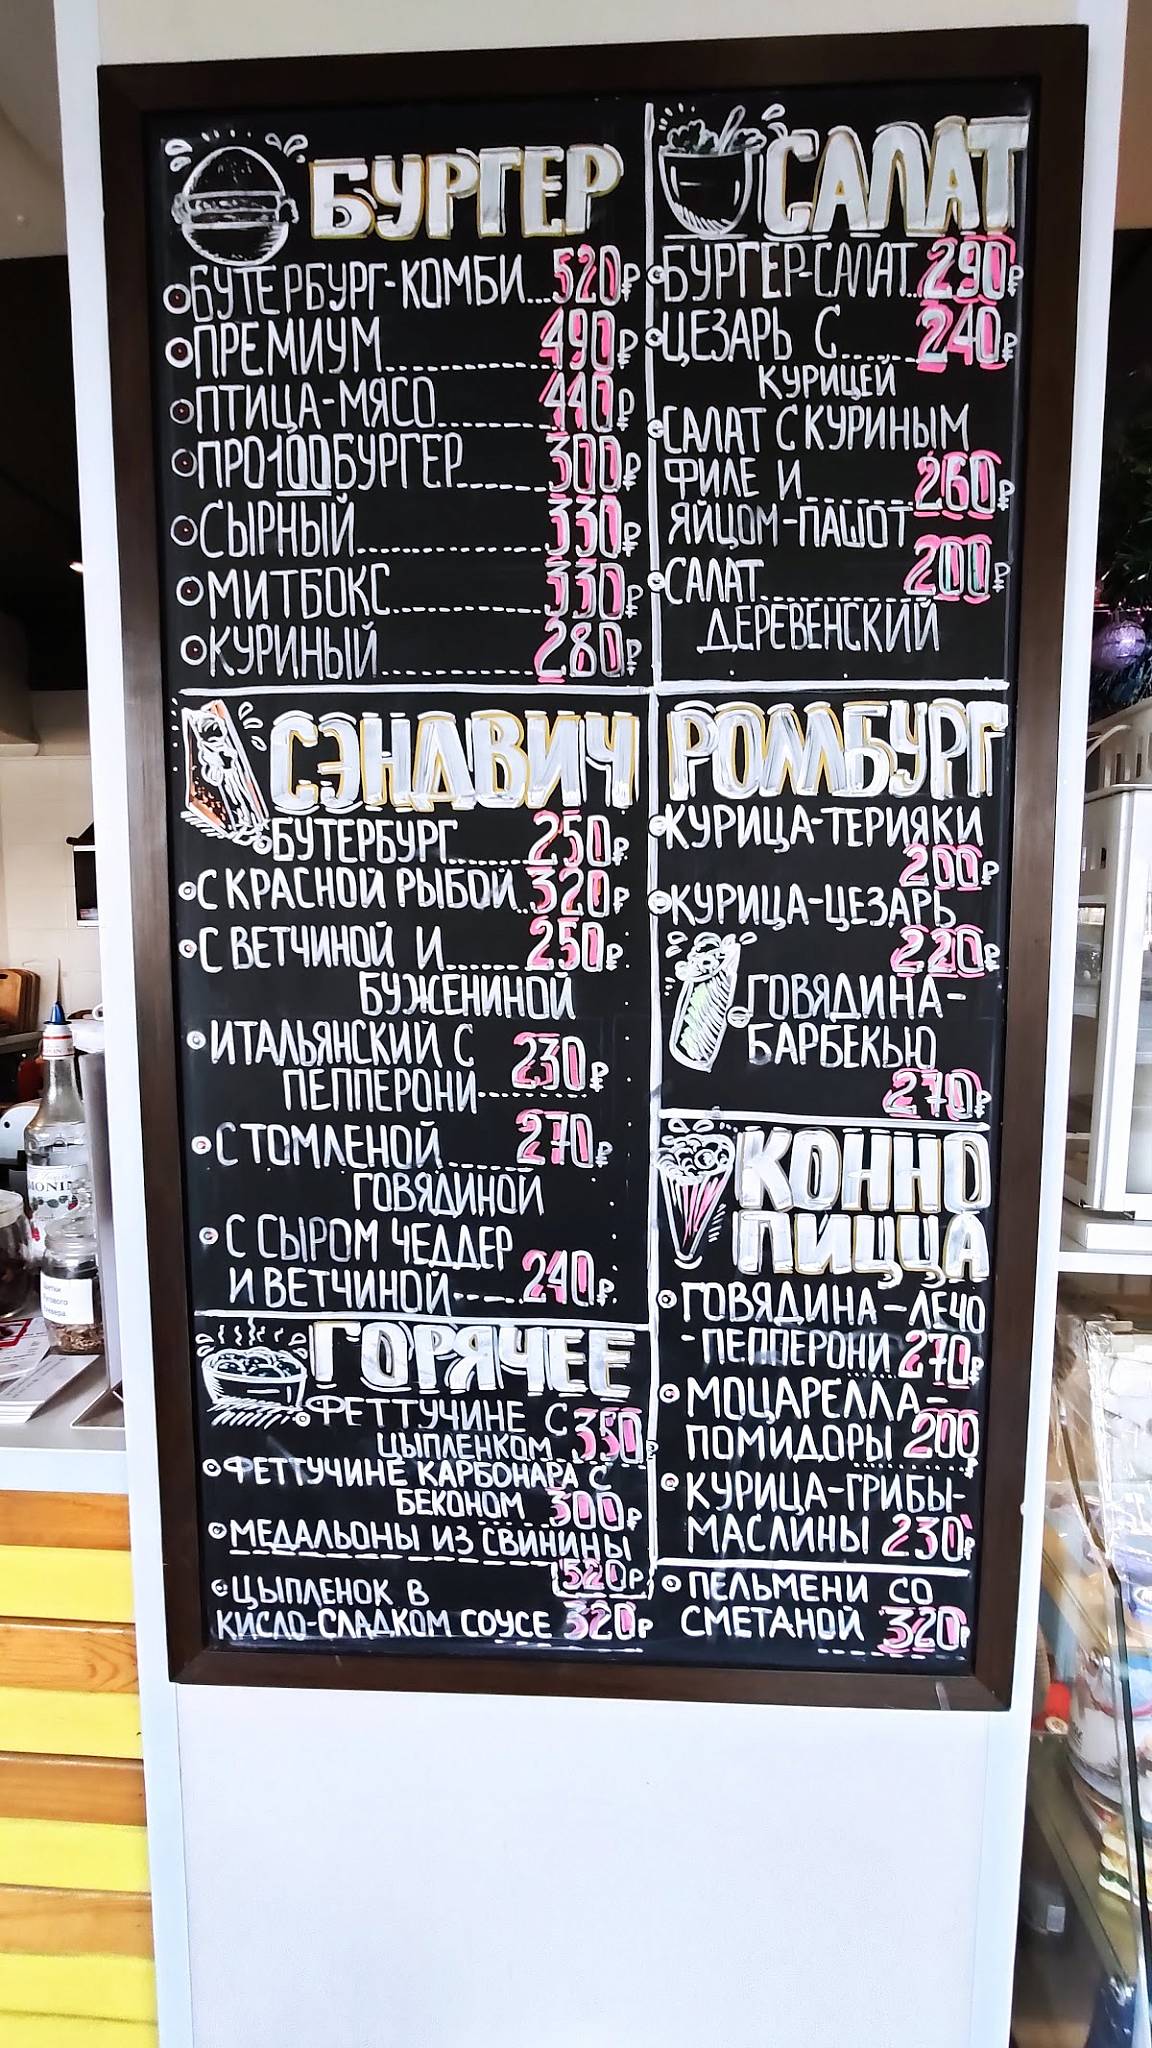 БУРГЕР
БУТЕРБУРГ-КОМБИ...520₽
ПРЕМИУМ 490₽
ПТИЦА-МЯСО 440₽
ПРО100БУРГЕР 300₽
СЫРНЫЙ 330₽
МИТБОКС 330₽
КУРИНЫЙ 280₽
САЛАТ
БУРГЕР-САЛАТ 290₽
ЦЕЗАРЬ С 240₽
КУРИЦЕЙ
САЛАТ С КУРИНЫМ
ФИЛЕ И 260₽
ЯЙЦОМ-ПАШОТ
САЛАТ 200₽
ДЕРЕВЕНСКИЙ
СЭНДВИЧ
БУТЕРБУРГ 250₽
С КРАСНОЙ РЫБОЙ..320₽
С ВЕТЧИНОЙ И 250₽
БУЖЕНИНОЙ
ИТАЛЬЯНСКИЙ С
ПЕППЕРОНИ 230₽
С ТОМЛЕНОЙ 270₽
ГОВЯДИНОЙ
С СЫРОМ ЧЕДДЕР
И ВЕТЧИНОЙ 240₽
РОМБУРГ
КУРИЦА-ТЕРИЯКИ
200₽
КУРИЦА-ЦЕЗАРЬ
220₽
ГОВЯДИНА-
БАРБЕКЬЮ
270₽
КОННО
ПИЦЦА
ГОВЯДИНА-ЛЕЧО
-ПЕППЕРОНИ 270₽
МОЦАРЕЛЛА-
ПОМИДОРЫ 200₽
КУРИЦА-ГРИБЫ-
МАСЛИНЫ 230₽
ПЕЛЬМЕНИ СО
СМЕТАНОЙ 320₽
ГОРЯЧЕЕ
ФЕТТУЧИНЕ С
ЦЫПЛЕНКОМ 350₽
ФЕТТУЧИНЕ КАРБОНАРА С
БЕКОНОМ 300₽
МЕДАЛЬОНЫ ИЗ СВИНИНЫ
520₽
ЦЫПЛЕНОК В
КИСЛО-СЛАДКОМ СОУСЕ 320₽
MONIN